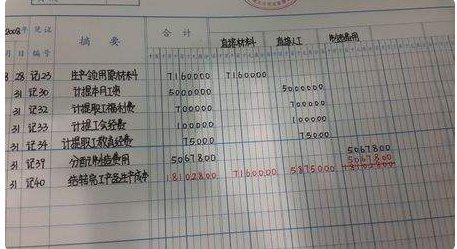 2008年 凭证 摘要 合计 直接材料 直接人工 制造费用
月 日 编号
8 28 记23 生产领用原材料 7160000 7160000
31 记30 计提本月工资 5000000 5000000
31 记32 计提职工福利费 700000 700000
31 记33 计提工会经费 100000 100000
31 记34 计提职工教育经费 75000 75000
31 记39 分配制造费用 5067800 5067800
5067800
31 记40 结转完工产品生产成本 18102800 7160000 5875000 18102800